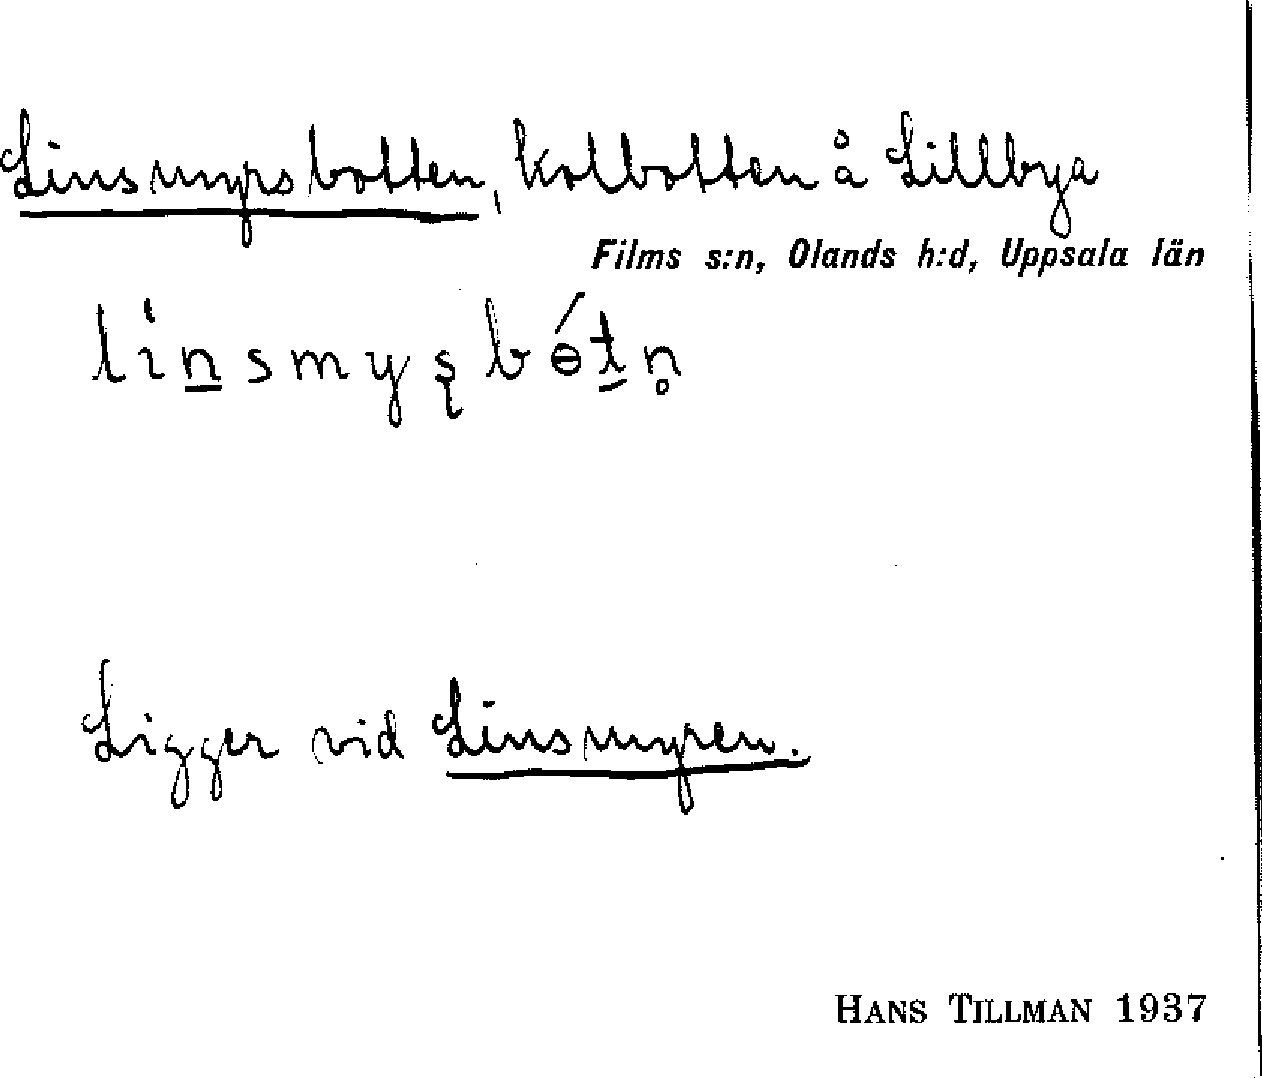 Linsmyrsbotten, kolbotten å Lillbya
Films s:n, Olands h:d, Uppsala län
li̍n̲smyşbɵ́t̲n̥
Ligger vid Linsmyren.
HANS TILLMAN 1937